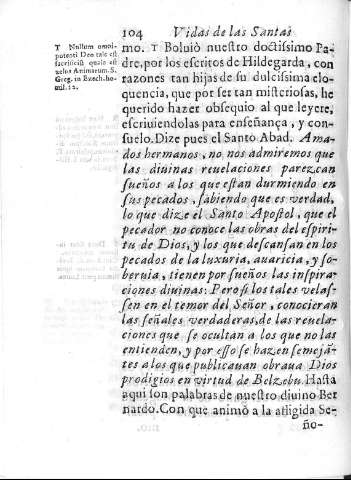 104 Vidas de las Santas
T Nullum omni-
potenti Deo tale est
sacrificiũ quale est
zelus Animarum. S.
Greg. in Ezech. ho-
mil. 12.
mo. T Boluiò nuestro doctissimo Pa-
dre, por los escritos de Hildegarda, con
razones tan hijas de su dulcissima elo-
quencia, que por ser tan misteriosas, he
querido hazer obsequio al que leyere,
escriuiendolas para enseñança, y con-
suelo. Dize pues el Santo Abad. Ama-
dos hermanos, no nos admiremos que
las diuinas reuelaciones parezcan
sueños a los que estan durmiendo en
sus pecados, sabiendo que es verdad,
lo que dize el Santo Apostol, que el
pecador no conoce las obras del espiri-
tu de Dios, y los que descansan en los
pecados de la luxuria, auaricia, y so-
beruia, tienen por sueños las inspira-
ciones diuinas: Pero si los tales velas-
sen en el temor del Señor, conocieran
las señales verdaderas, de las reuela-
ciones que se ocultan a los que no las
entienden, y por esso se hazen semejã-
tes a los que publicauan obraua Dios
prodigios en virtud de Belzebu. Hasta
aqui son palabras de nuestro diuino Ber
nardo. Con que animò a la afligida Se-
ño-